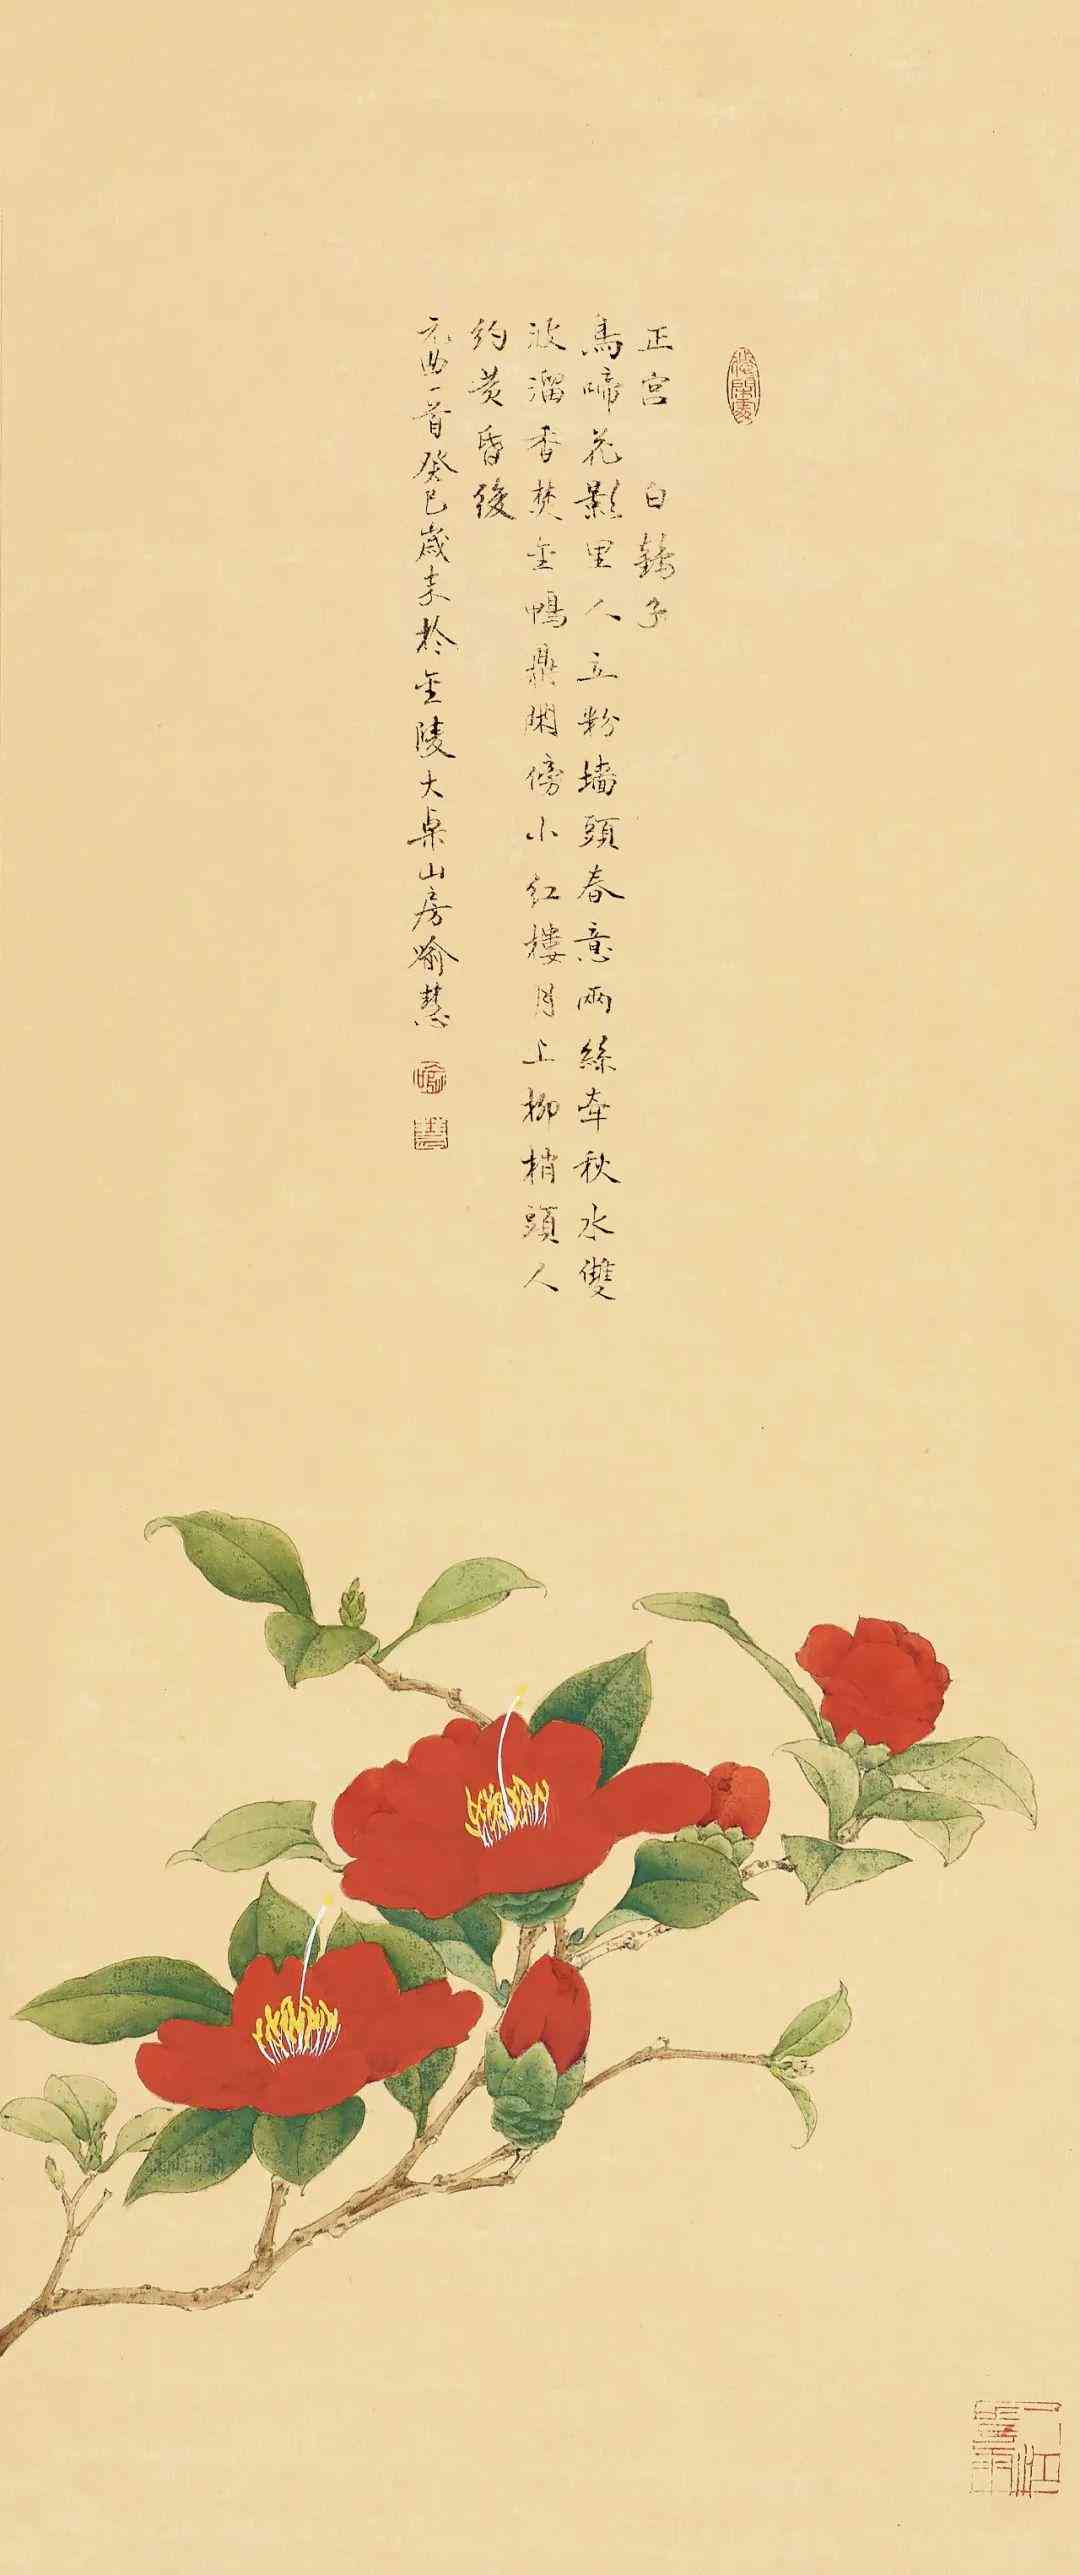 正宮 白鶴子
鳥啼花影里人立粉墻頭春意兩絲牽秋水雙
波溜香焚金鴨鼎閑傍小紅樓月上柳梢頭人
約黄昏後
元曲一首癸巳歲末於金陵大桌山房喻慧
喻
慧